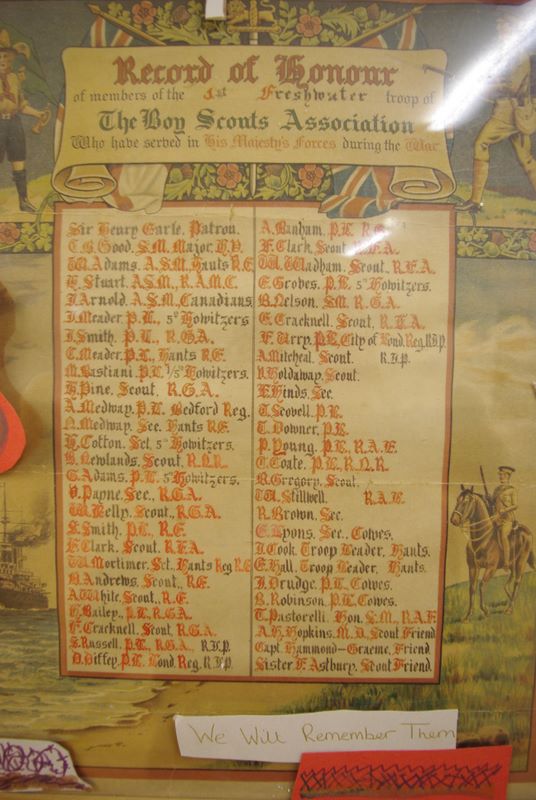 Record of Honour
of members of the 1st Freshwater troop of
The Boy Scouts Association
Who have served in His Majesty's Forces during the War
Sir Henry Earle, Patron.
C.B. Good, S.M. Major,
W. Adams, A.S.M., Hants R.E.
Stuart, A.S.M., R.A.M.C.
J. Arnold, A.S.M., Canadians
J. Meader, P.L., 5th Howitzers
J. Smith, P.L., R.G.A.
C. Meader, P.L., Hants R.E.
M. Bastiani, P.L. 1/5th Howitzers.
Pine, Scout, R.G.A.
A. Medway, P.L. Bedford Reg.
N. Medway, Sec. Hants R.E.
H. Cotton, Sct. 5th Howitzers.
Newlands, Scout, R.N.R.
G. Adams, P.L. 5th Howitzers.
V. Payne, Sec., R.G.A.
W. Kelly, Scout, R.G.A.
S. Smith, P.L., R.E.
F. Clark, Scout, R.F.A.
W. Mortimer, Sct. Hants Reg R.E
N. Andrews, Scout, R.E.
A. White, Scout, R.E.
H. Bailey, P.L., R.G.A.
F. Cracknell, Scout, R.G.A.
S. Russell, P.L., R.G.A., R.I.P.
D. Diffey, P.L. Lond. Reg. R.I.P.
A. Banham, P.L.
F. Clark, Scout, R.F.A.
W. Wadham, Scout, R.F.A.
E. Groves, P.L. 5th Howitzers.
B. Nelson, S.M. R.G.A.
E. Cracknell, Scout, R.F.A.
F. Urry, P.L. City of Lond. Reg. R.I.P.
A. Mitcheal, Scout. R.I.P.
V. Holdaway, Scout.
Hinds, Sec.
T. Scovell, P.L.
T. Downer, P.L.
P. Young, P.L., R.A.F.
T. Coate, P.L., R.N.R.
Gregory, Scout.
W. Stillwell. R.A.F.
R. Brown, Sec.
E. Lyons, Sec., Cowes.
J. Cook, Troop Leader, Hants.
E. Hall, Troop Leader, Hants.
J. Drudge, P.L. Cowes.
B. Robinson, P.L. Cowes.
T. Pastorelli, Hon. S.M., R.A.F.
A.H. Hopkins, M.D. Scout Friend
Capt. Hammond-Graeme, Friend
Sister F. Astbury, Scout Friend
We Will Remember Them